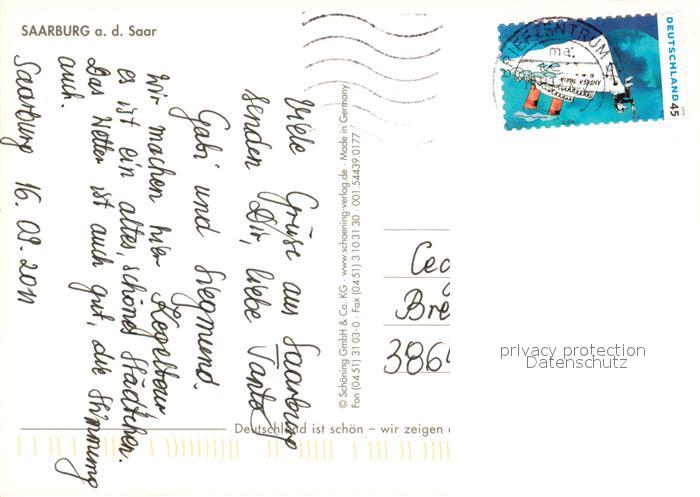 SAARBURG a. d. Saar
DEUTSCHLAND 45
BRIEFZENTRUM
ma
Viele Grüse aus Saarburg
senden Dir, liebe Tante
Gabi und Siegmund.
Wir machen hier Kegeltour,
es ist ein altes, schönes Städtchen.
Das Wetter ist auch gut, die Stimmung
auch.
Saarburg 16.09.2011
© Schöning GmbH & Co. KG · www.schoening-verlag.de · Made in Germany
Fon (04 51) 3 10 3-0 · Fax (04 51) 3 10 31 30 · 001.54439.0177
Deutschland ist schön – wir zeigen
3864
privacy protection
Datenschutz